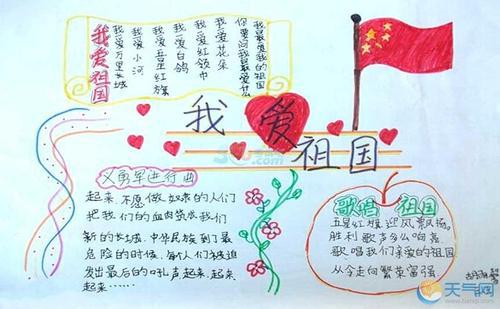 我爱祖国
我爱万里长城
我爱小河
我爱五星红旗
我爱白鸽
我爱红领巾
我爱花朵
你要问我最爱什么
我最爱我的祖国
我爱祖国
义勇军进行曲
起来,不愿做奴隶的人们
把我们的血肉筑成我们
新的长城,中华民族到了最
危险的时候,每个人们被迫
发出最后的吼声起来,起来
起来……
歌唱 祖国
五星红旗迎风飘扬,
胜利歌声多么响亮,
歌唱我们亲爱的祖国
从今走向繁荣富强
天气网